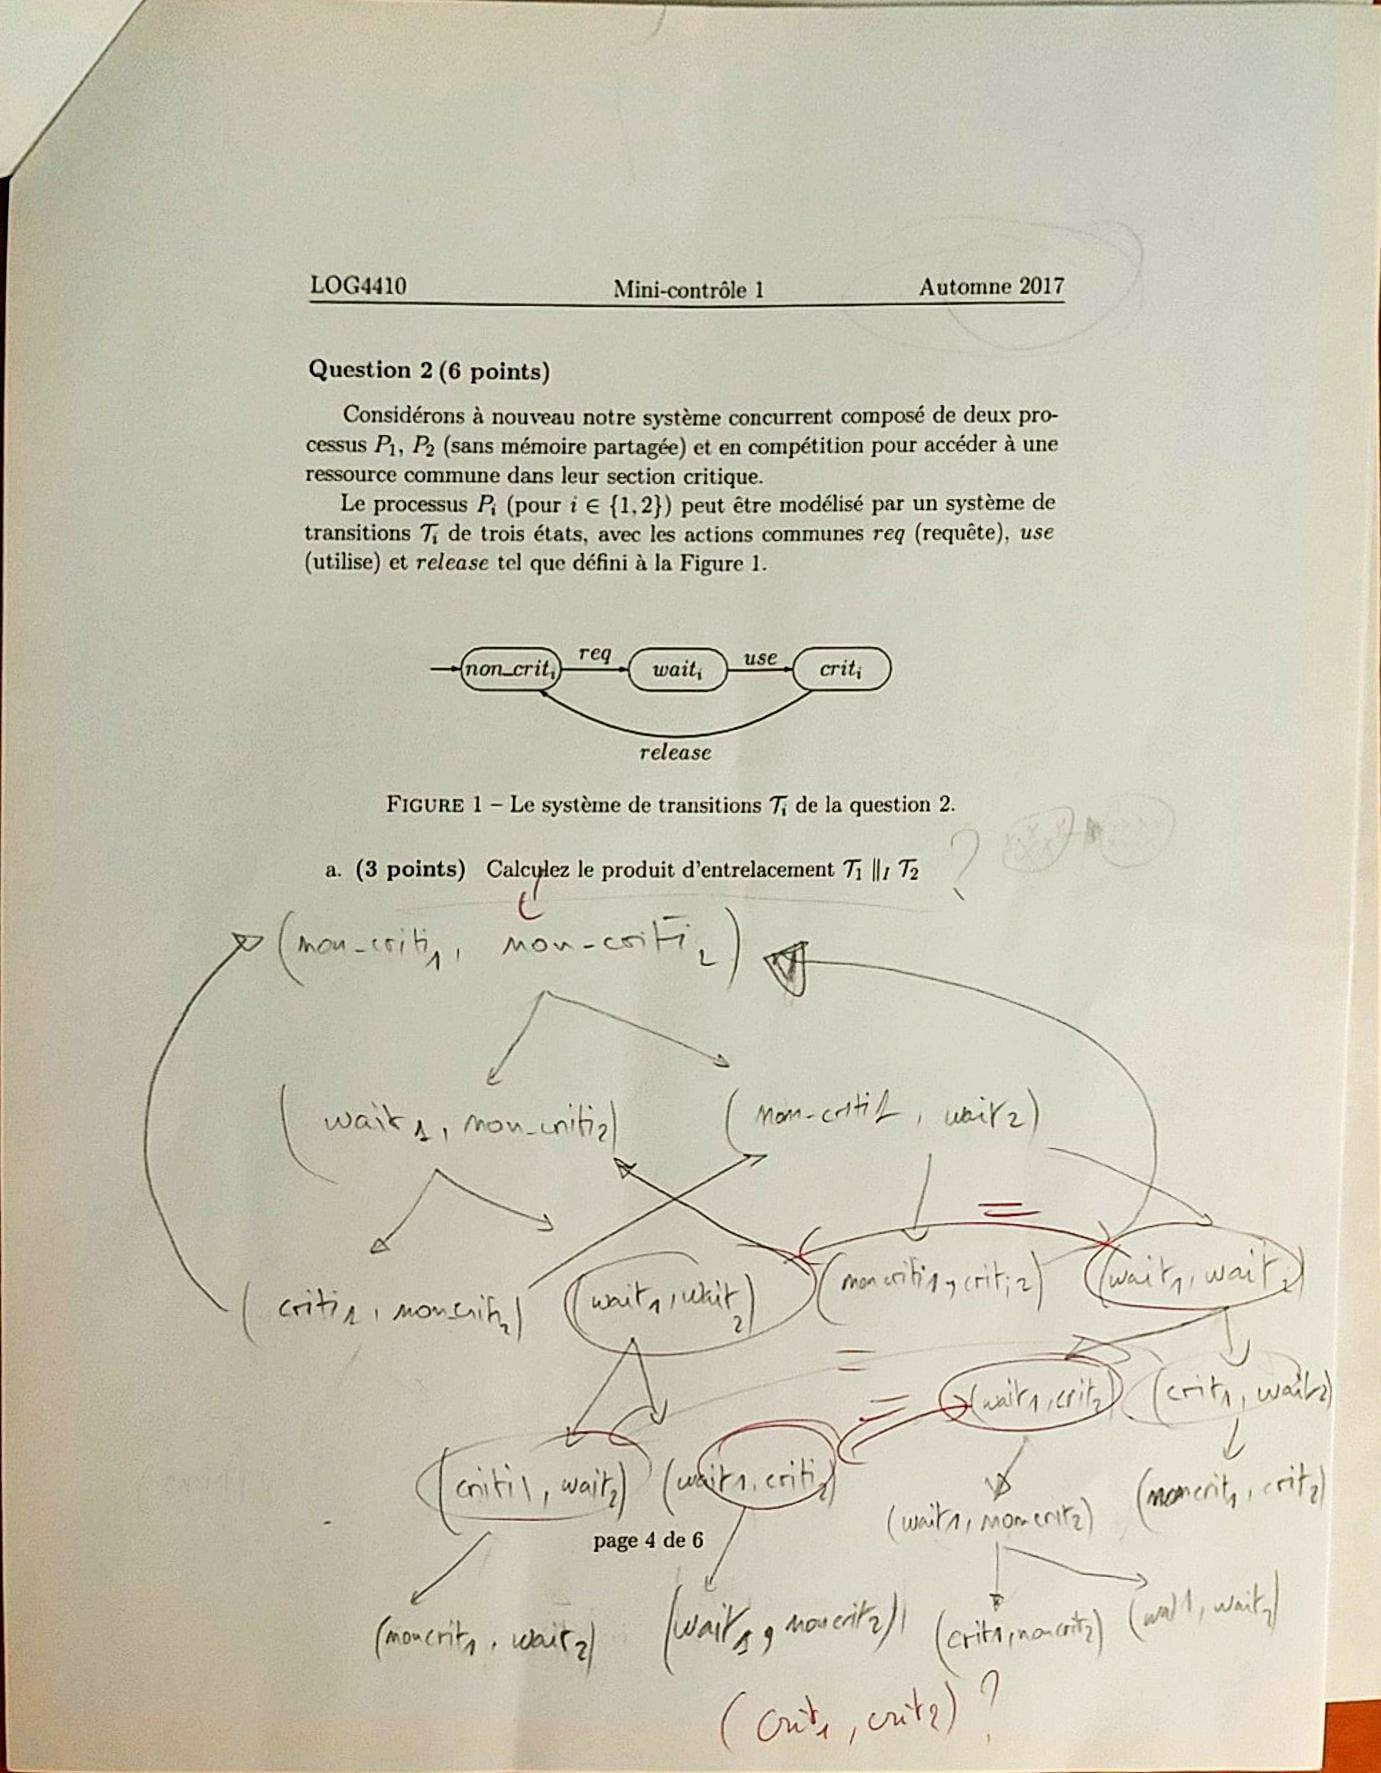 LOG4410 Mini-contrôle 1 Automne 2017
Question 2 (6 points)
Considérons à nouveau notre système concurrent composé de deux pro-
cessus P₁, P₂ (sans mémoire partagée) et en compétition pour accéder à une
ressource commune dans leur section critique.
Le processus Pᵢ (pour i ∈ {1,2}) peut être modélisé par un système de
transitions 𝒯ᵢ de trois états, avec les actions communes req (requête), use
(utilise) et release tel que défini à la Figure 1.
req use
non_critᵢ waitᵢ critᵢ
release
FIGURE 1 – Le système de transitions 𝒯ᵢ de la question 2.
a. (3 points) Calculez le produit d'entrelacement 𝒯₁ ||ᵢ 𝒯₂ ?
(non-criti₁, non-criti₂)
(wait₁, non-criti₂) (non-criti1, wait₂)
=
(criti₁, noncrit₂) (wait₁, wait₂) (noncriti₁, criti₂) (wait₁, wait₂)
= = (wait₁, crit₂) (crit₁, wait₂)
(criti1, wait₂) (wait₁, criti₂) (wait₁, noncrit₂) (noncrit₁, crit₂)
page 4 de 6
(noncrit₁, wait₂) (wait₁, noncrit₂) (crit₁, noncrit₂) (wait1, wait₂)
(crit₁, crit₂) ?